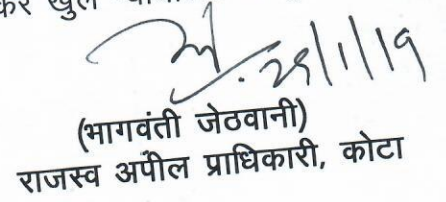 कर खुल
29/1/19
(भागवंती जेठवानी)
राजस्व अपील प्राधिकारी, कोटा